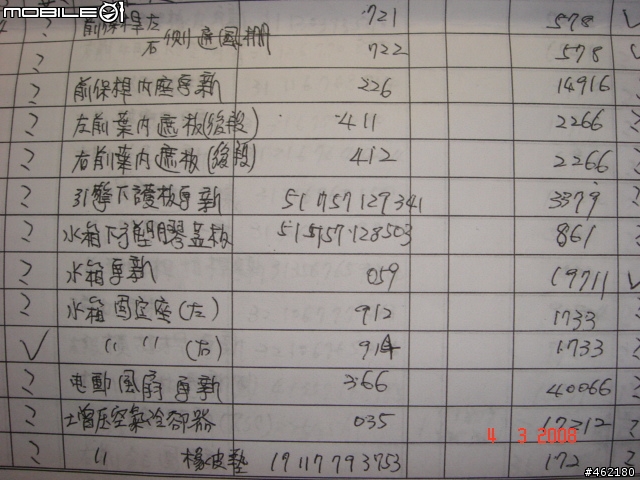 MOBILE01
前保桿左 721 578 ✓
? 右側通風柵 722 578
? 前保桿內座更新 226 14916
? 左前葉內遮板(後段) 411 2266 ?
? 右前葉內遮板(後段) 412 2266 ?
? 引擎下護板更新 51757129341 3379 ?
? 水箱下塑膠蓋板 51757128503 861 ?
? 水箱更新 059 19711 ✓
? 水箱固定座(左) 912 1733 ?
✓ 〃 〃 (右) 914 1733 ?
? 电動風扇更新 366 40066 ?
? 增压空氣冷却器 035 17212 ?
? 〃 橡皮墊 17117793753 172 ?
4 3 2008
#462180